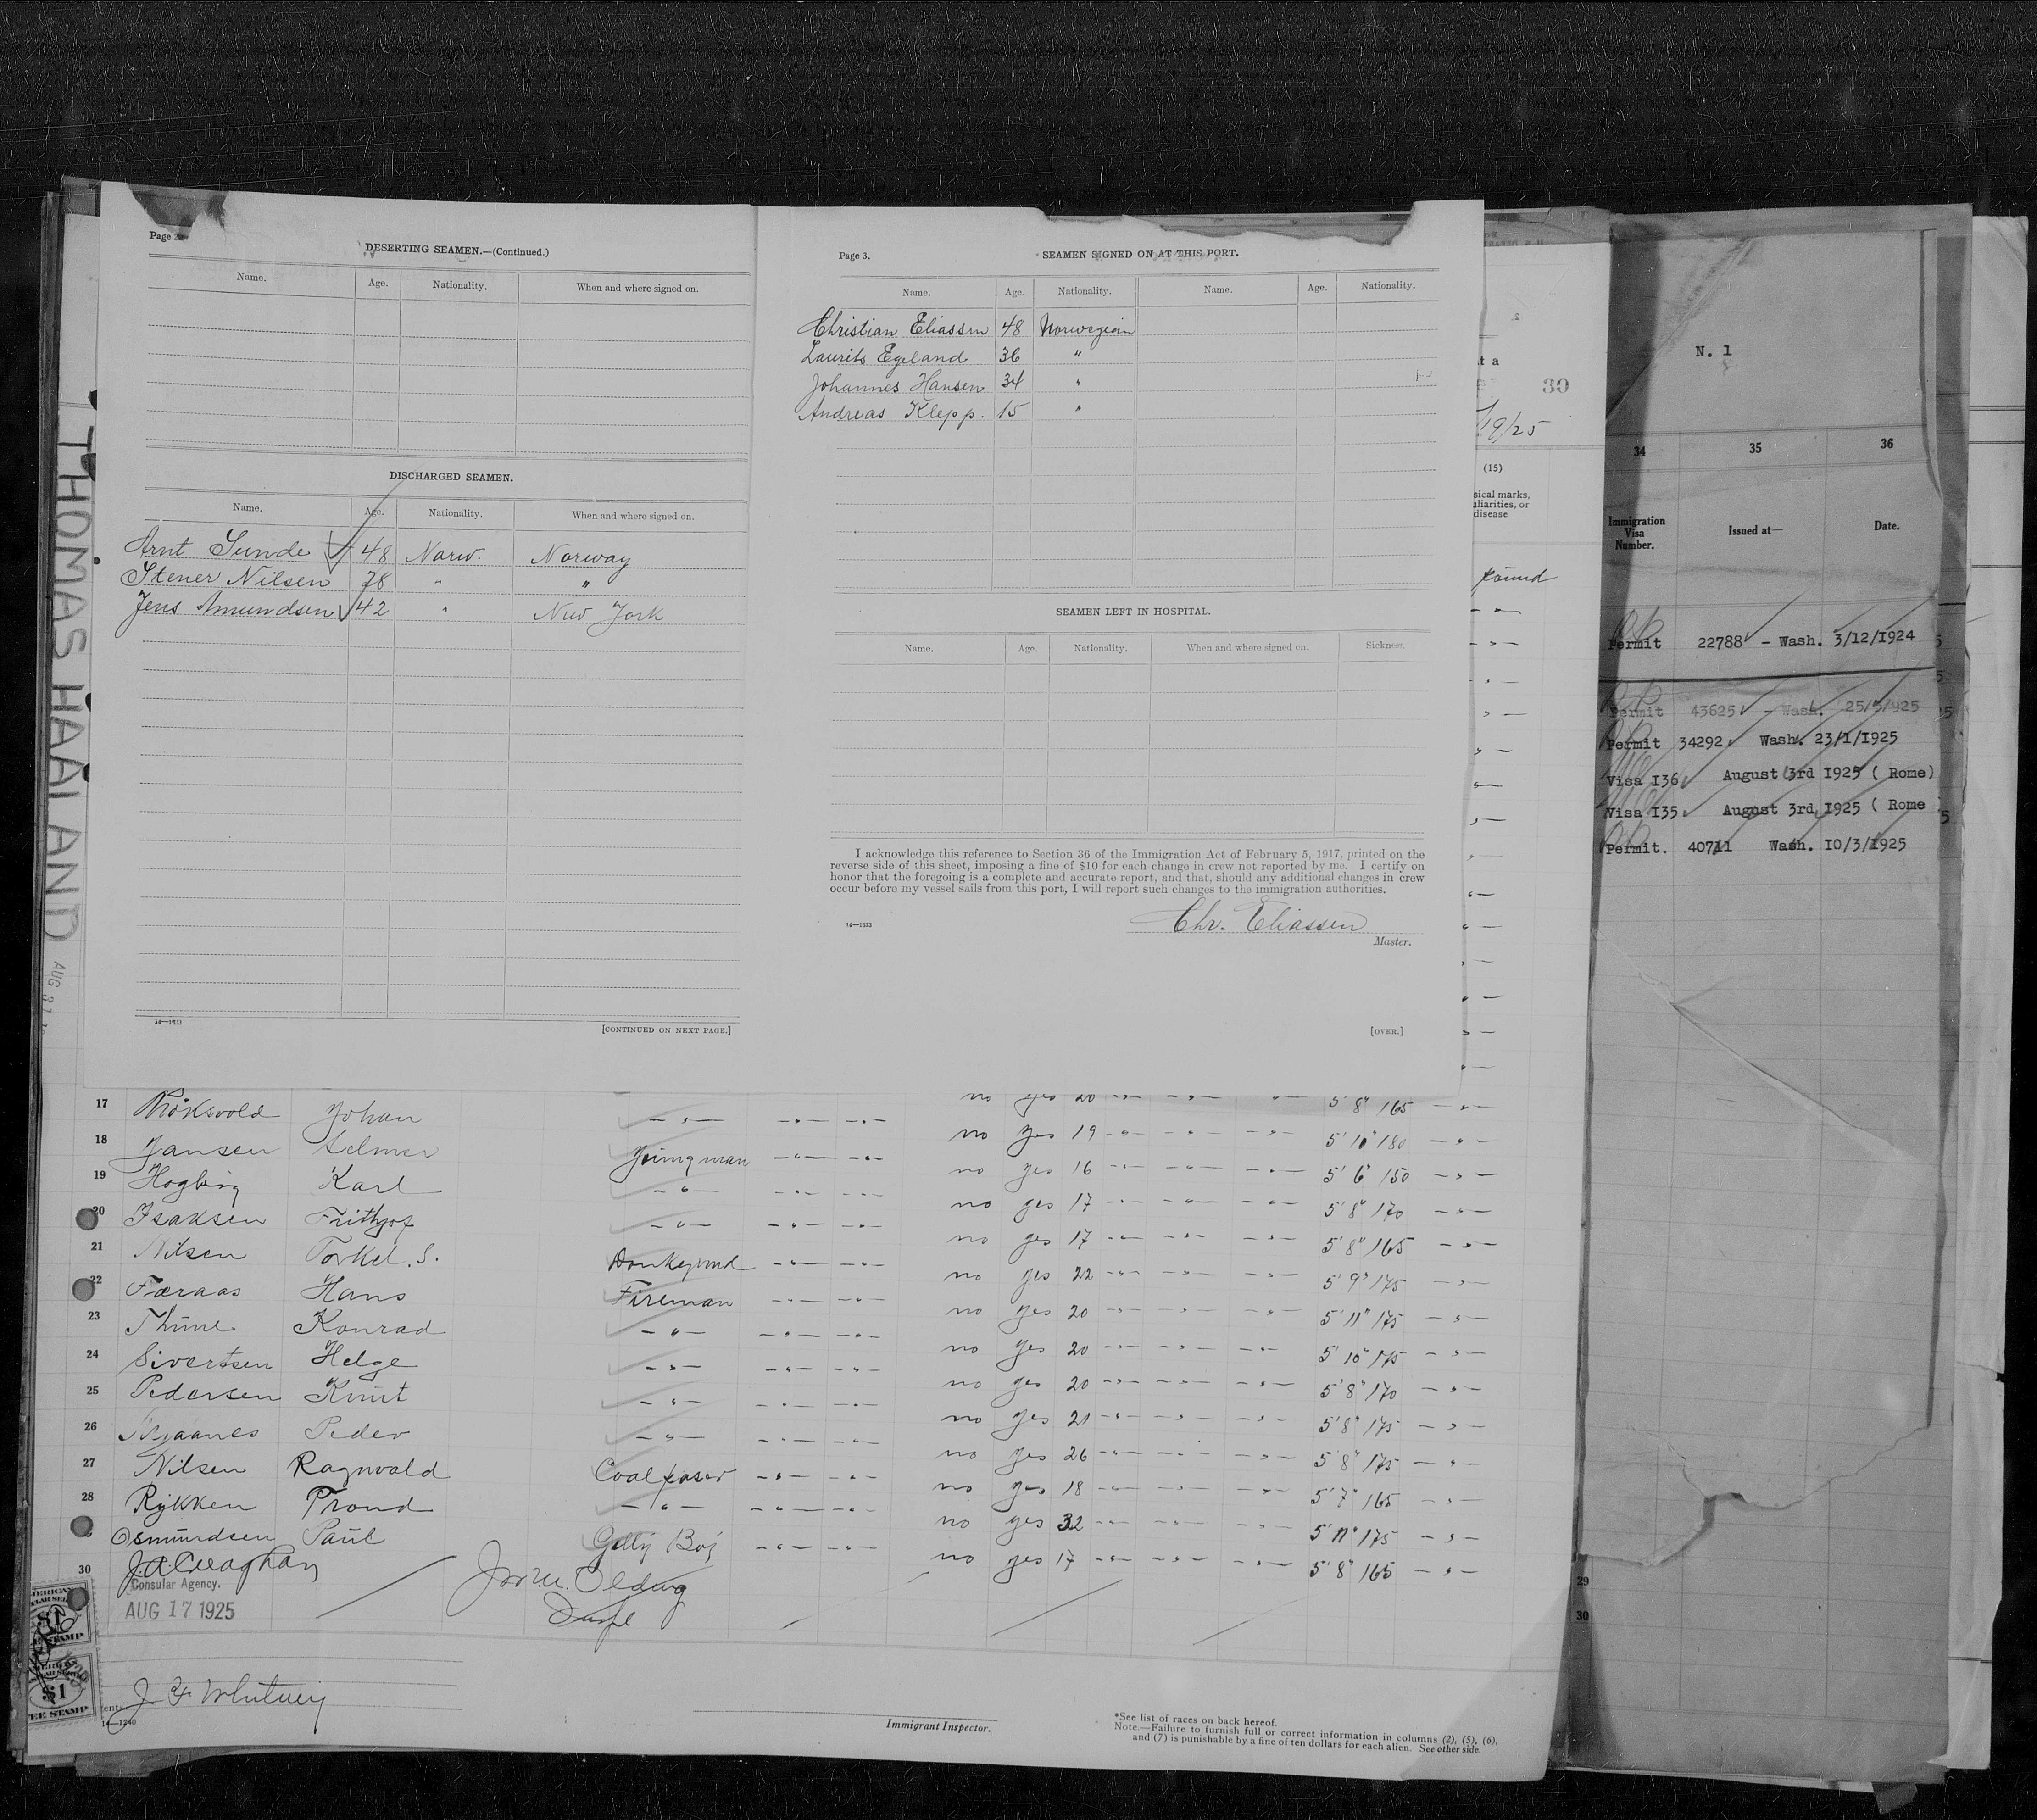 Page
DESERTING SEAMEN.—(Continued.)
Name. Age. Nationality. When and where signed on.
DISCHARGED SEAMEN.
Name. Age. Nationality. When and where signed on.
Arnt Sunde 48 Narw. Norway
Stener Nilsen 28 " "
Jens Amundsen 42 " New York
14—1613
[CONTINUED ON NEXT PAGE.]
Page 3.
SEAMEN SIGNED ON AT THIS PORT.
Name. Age. Nationality. Name. Age. Nationality.
Christian Eliassen 48 Norwegian
Laurits Egeland 36 "
Johannes Hansen 34 "
Andreas Klepp. 15 "
SEAMEN LEFT IN HOSPITAL.
Name. Age. Nationality. When and where signed on. Sickness.
I acknowledge this reference to Section 36 of the Immigration Act of February 5, 1917, printed on the
reverse side of this sheet, imposing a fine of $10 for each change in crew not reported by me. I certify on
honor that the foregoing is a complete and accurate report, and that, should any additional changes in crew
occur before my vessel sails from this port, I will report such changes to the immigration authorities.
Chr. Eliassen
14—1613
Master.
[OVER.]
THOMAS HAALAND
AUG 31
t a
30
19/25
(15)
sical marks,
uliarities, or
disease
found
N. 1
34 35 36
Immigration
Visa
Number.
Issued at—
Date.
Permit 22788 - Wash. 3/12/1924
Permit 43625 - Wash. 25/5/925
Permit 34292 Wash. 23/1/1925
Visa I36 August 3rd 1925 ( Rome)
Visa I35 August 3rd 1925 ( Rome
Permit. 40711 Wash. IO/3/1925
17 Johan — " — — " — — " — no yes 20 — " — — " — — " — 5' 8" 165 — " —
18 Jansen Selmer Youngman — " — — " — no yes 19 — " — — " — — " — 5' 10" 180 — " —
19 Karl — " — — " — — " — no yes 16 — " — — " — — " — 5' 6" 150 — " —
20 Isaksen Frithjof — " — — " — — " — no yes 17 — " — — " — — " — 5' 8" 170 — " —
21 Nilsen Torkel. S. Donkeymd — " — — " — no yes 17 — " — — " — — " — 5' 8" 165 — " —
22 Færaas Hans Fireman — " — — " — no yes 22 — " — — " — — " — 5' 9" 175 — " —
23 Thime Konrad — " — — " — — " — no yes 20 — " — — " — — " — 5' 11" 175 — " —
24 Sivertsen Helge — " — — " — — " — no yes 20 — " — — " — — " — 5' 10" 175 — " —
25 Pedersen Knut — " — — " — — " — no yes 20 — " — — " — — " — 5' 8" 170 — " —
26 Peder — " — — " — — " — no yes 21 — " — — " — — " — 5' 8" 175 — " —
27 Nilsen Ragnvald Coalpaser — " — — " — no yes 26 — " — — " — — " — 5' 8" 175 — " —
28 Rykken Trond — " — — " — — " — no yes 18 — " — — " — — " — 5' 7" 165 — " —
Osmundsen Paul Gally Boy — " — — " — no yes 32 — " — — " — — " — 5' 11" 175 — " —
30 no yes 17 — " — — " — — " — 5' 8" 165 — " —
J.A. Creaghan
Consular Agency.
AUG 17 1925
$1
FEE STAMP
$1
FEE STAMP
J F Whitney
14—1240
Immigrant Inspector.
*See list of races on back hereof.
Note.—Failure to furnish full or correct information in columns (2), (5), (6),
and (7) is punishable by a fine of ten dollars for each alien. See other side.
29
30